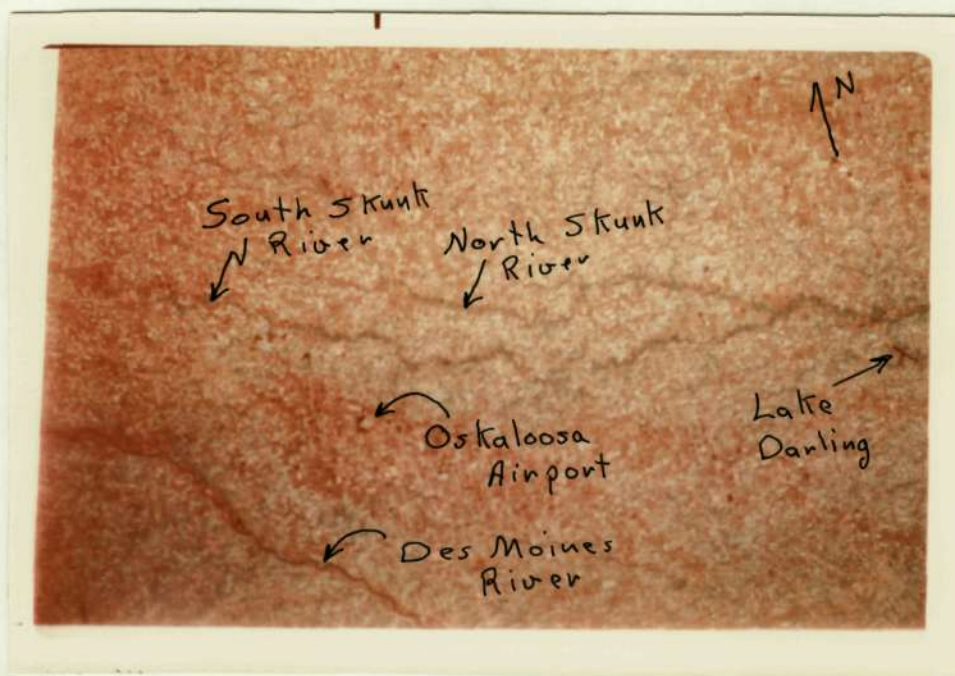 N
South Skunk
River
North Skunk
River
Lake
Darling
Oskaloosa
Airport
Des Moines
River